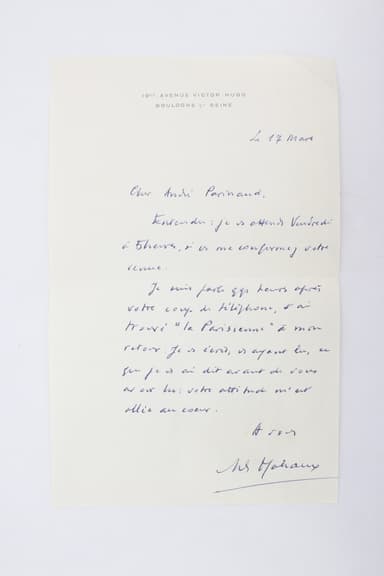 19bis AVENUE VICTOR HUGO
BOULOGNE S/ SEINE
Le 17 Mars
Cher André Parinaud,
Entendu : je vs attends Vendredi
à 5 heures, si vs me confirmez votre
venue.
Je suis parti qqs heures après
votre coup de téléphone, & ai
trouvé "la Parisienne" à mon
retour. Je vs écris, vs ayant lu, ce
que je vs ai dit avant de vous
avoir lu : votre attitude m'est
allée au coeur.
A vous